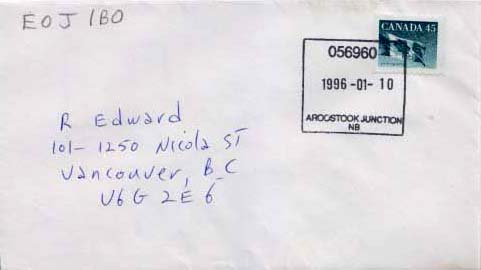 E0J 1B0
CANADA 45
056960
1996-01-10
AROOSTOOK JUNCTION
NB
R Edward
101-1250 Nicola ST
Vancouver, B C
V6G 2E6